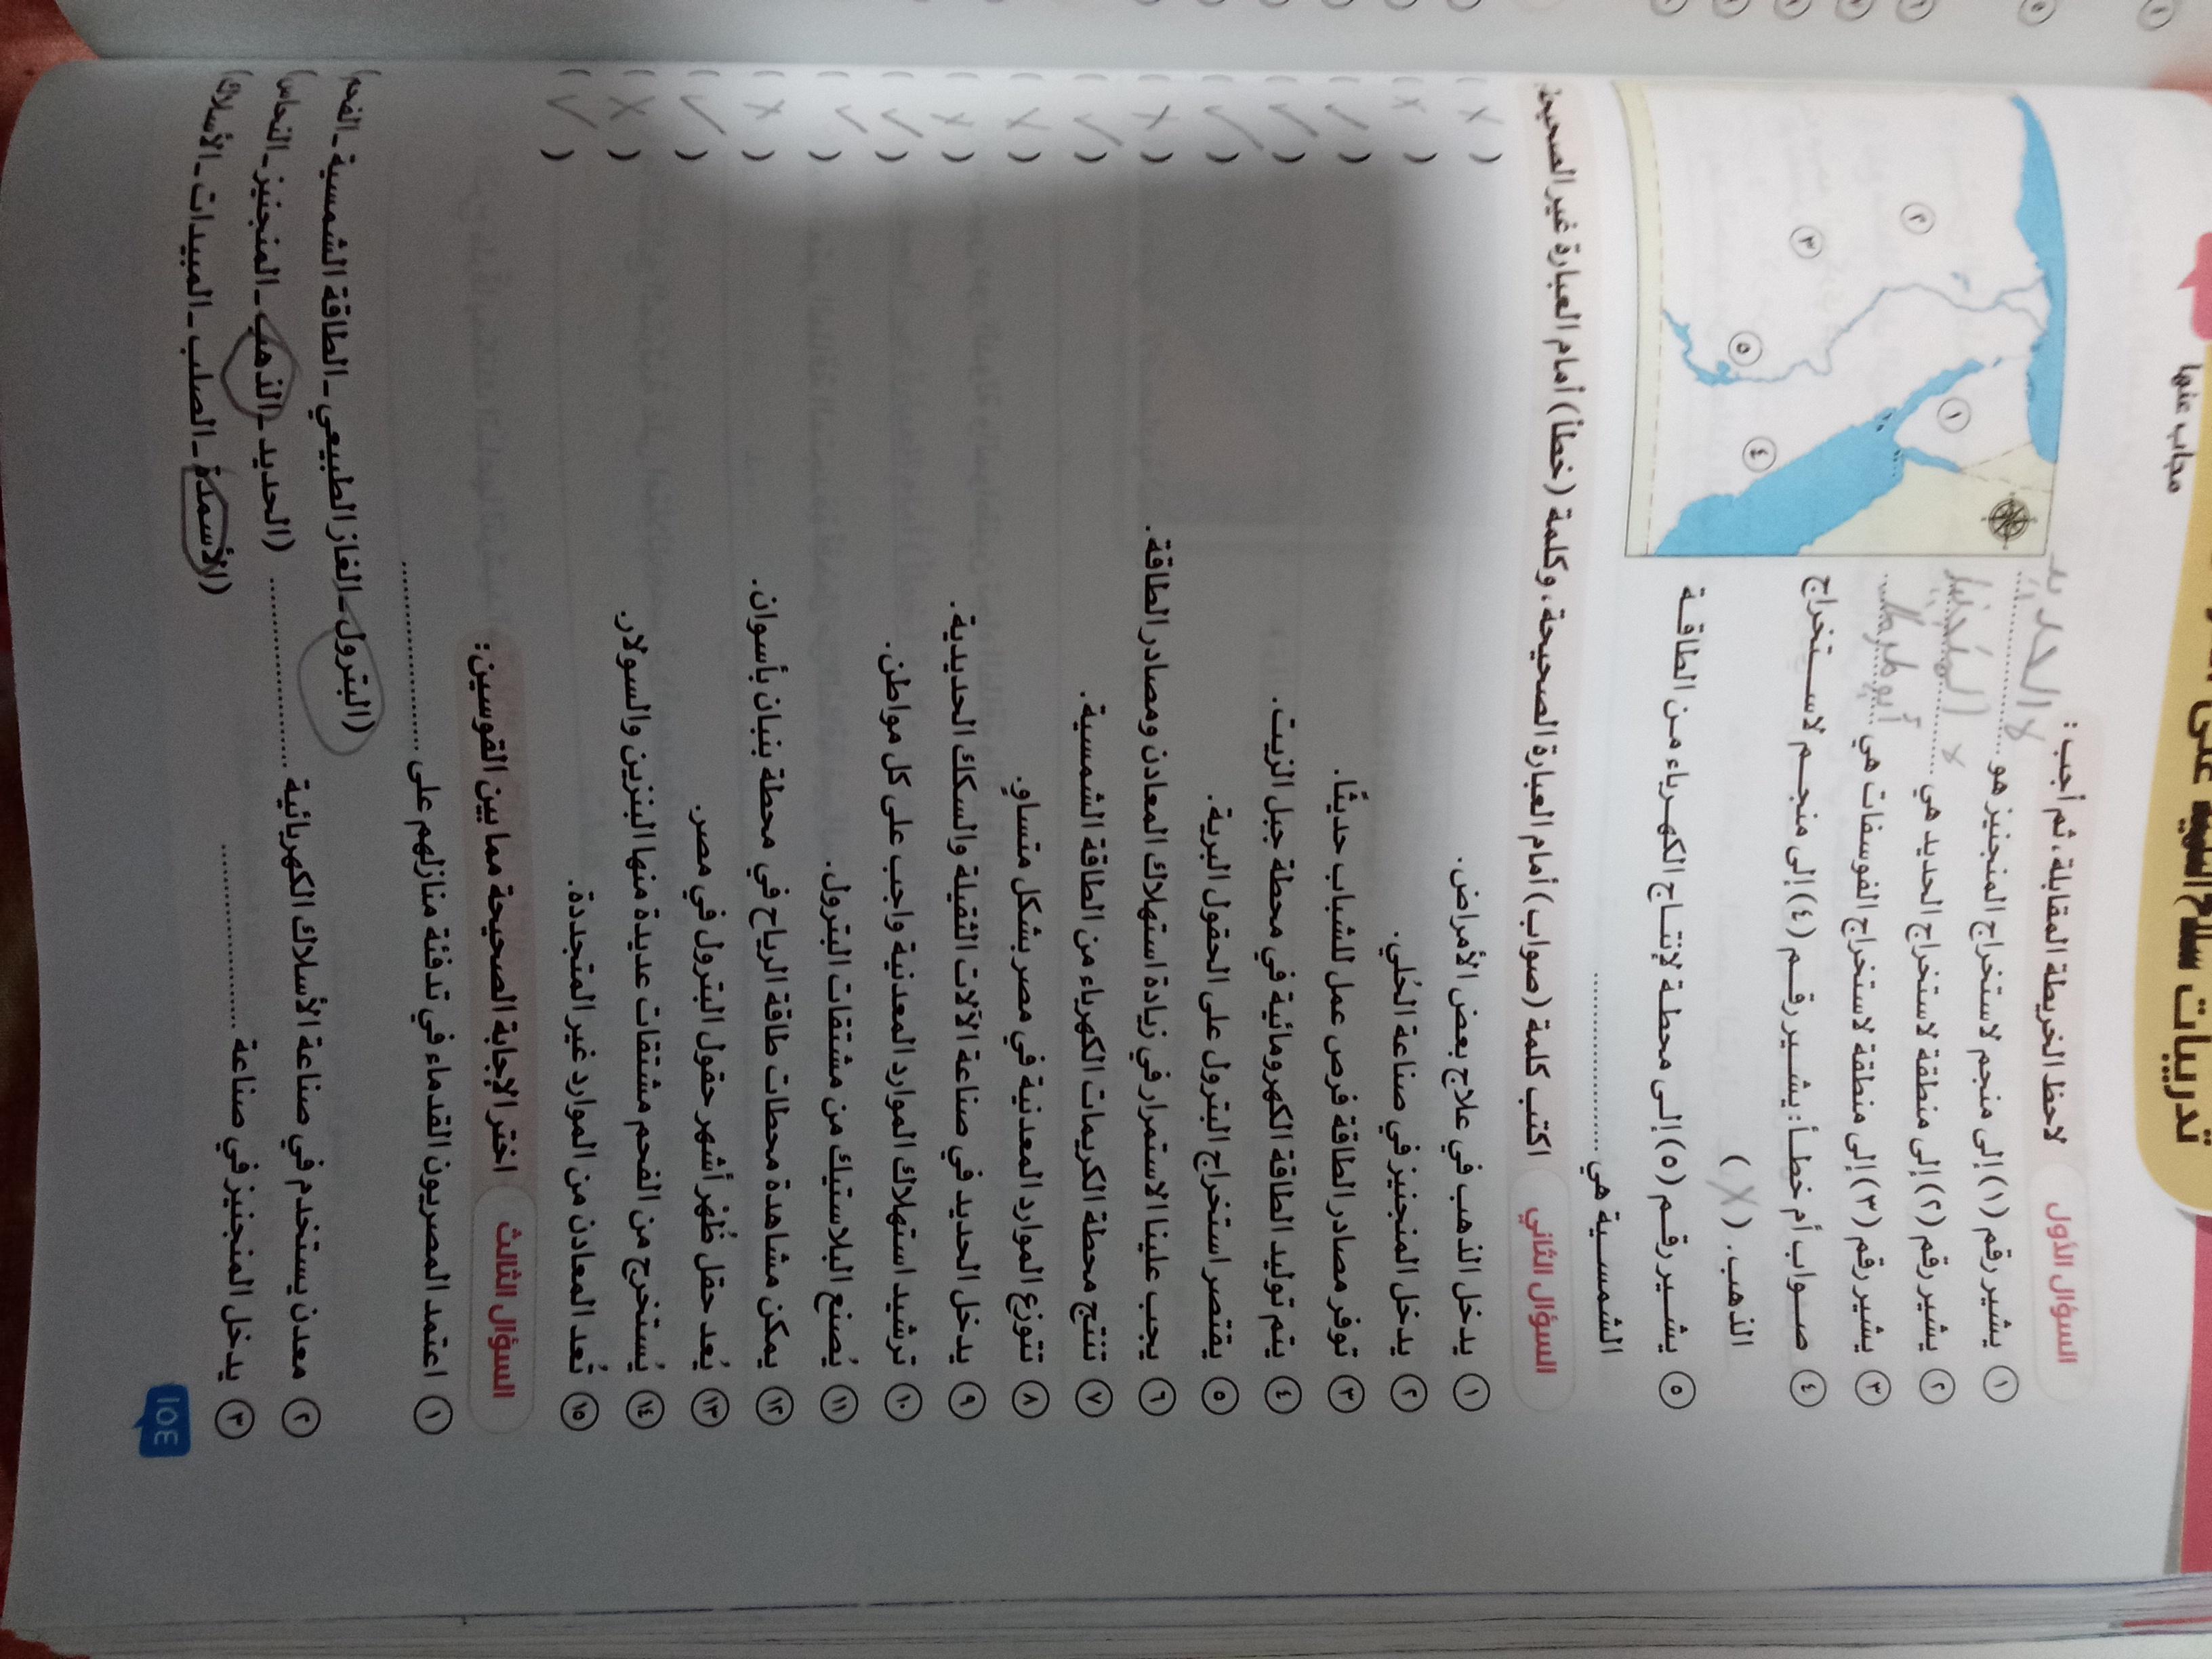 تدريبات سلاح التلميذ على
مجاب عنها
السؤال الأول لاحظ الخريطة المقابلة، ثم أجب:
١ يشير رقم (١) إلى منجم لاستخراج المنجنيز هو ............ لا الحديد
٢ يشير رقم (٢) إلى منطقة لاستخراج الحديد هي ............ x
٣ يشير رقم (٣) إلى منطقة لاستخراج الفوسفات هي ............ أبو طرطور
٤ صواب أم خطأ: يشير رقم (٤) إلى منجم لاستخراج
الذهب. (X)
٥ يشير رقم (٥) إلى محطة لإنتاج الكهرباء من الطاقة
الشمسية هي ............
١
٢
٣
٤
٥
السؤال الثاني اكتب كلمة (صواب) أمام العبارة الصحيحة، وكلمة (خطأ) أمام العبارة غير الصحيحة:
١ يدخل الذهب في علاج بعض الأمراض. ( X )
٢ يدخل المنجنيز في صناعة الحُلي. ( X )
٣ توفر مصادر الطاقة فرص عمل للشباب حديثًا. ( ✓ )
٤ يتم توليد الطاقة الكهرومائية في محطة جبل الزيت. ( ✓ )
٥ يقتصر استخراج البترول على الحقول البرية. ( ✓ )
٦ يجب علينا الاستمرار في زيادة استهلاك المعادن ومصادر الطاقة. ( X )
٧ تنتج محطة الكريمات الكهرباء من الطاقة الشمسية. ( ✓ )
٨ تتوزع الموارد المعدنية في مصر بشكل متساوٍ. ( X )
٩ يدخل الحديد في صناعة الآلات الثقيلة والسكك الحديدية. ( X )
١٠ ترشيد استهلاك الموارد المعدنية واجب على كل مواطن. ( ✓ )
١١ يُصنع البلاستيك من مشتقات البترول. ( ✓ )
١٢ يمكن مشاهدة محطات طاقة الرياح في محطة بنبان بأسوان. ( X )
١٣ يُعد حقل ظُهْر أشهر حقول البترول في مصر. ( ✓ )
١٤ يُستخرج من الفحم مشتقات عديدة منها البنزين والسولار. ( X )
١٥ تُعد المعادن من الموارد غير المتجددة. ( ✓ )
السؤال الثالث اختر الإجابة الصحيحة مما بين القوسين:
١ اعتمد المصريون القدماء في تدفئة منازلهم على ............
(البترول - الغاز الطبيعي - الطاقة الشمسية - الفحم)
٢ معدن يستخدم في صناعة الأسلاك الكهربائية ............ (الحديد - الذهب - المنجنيز - النحاس)
٣ يدخل المنجنيز في صناعة ............ (الأسمدة - الصلب - المبيدات - الأسلاك)
١٥٣